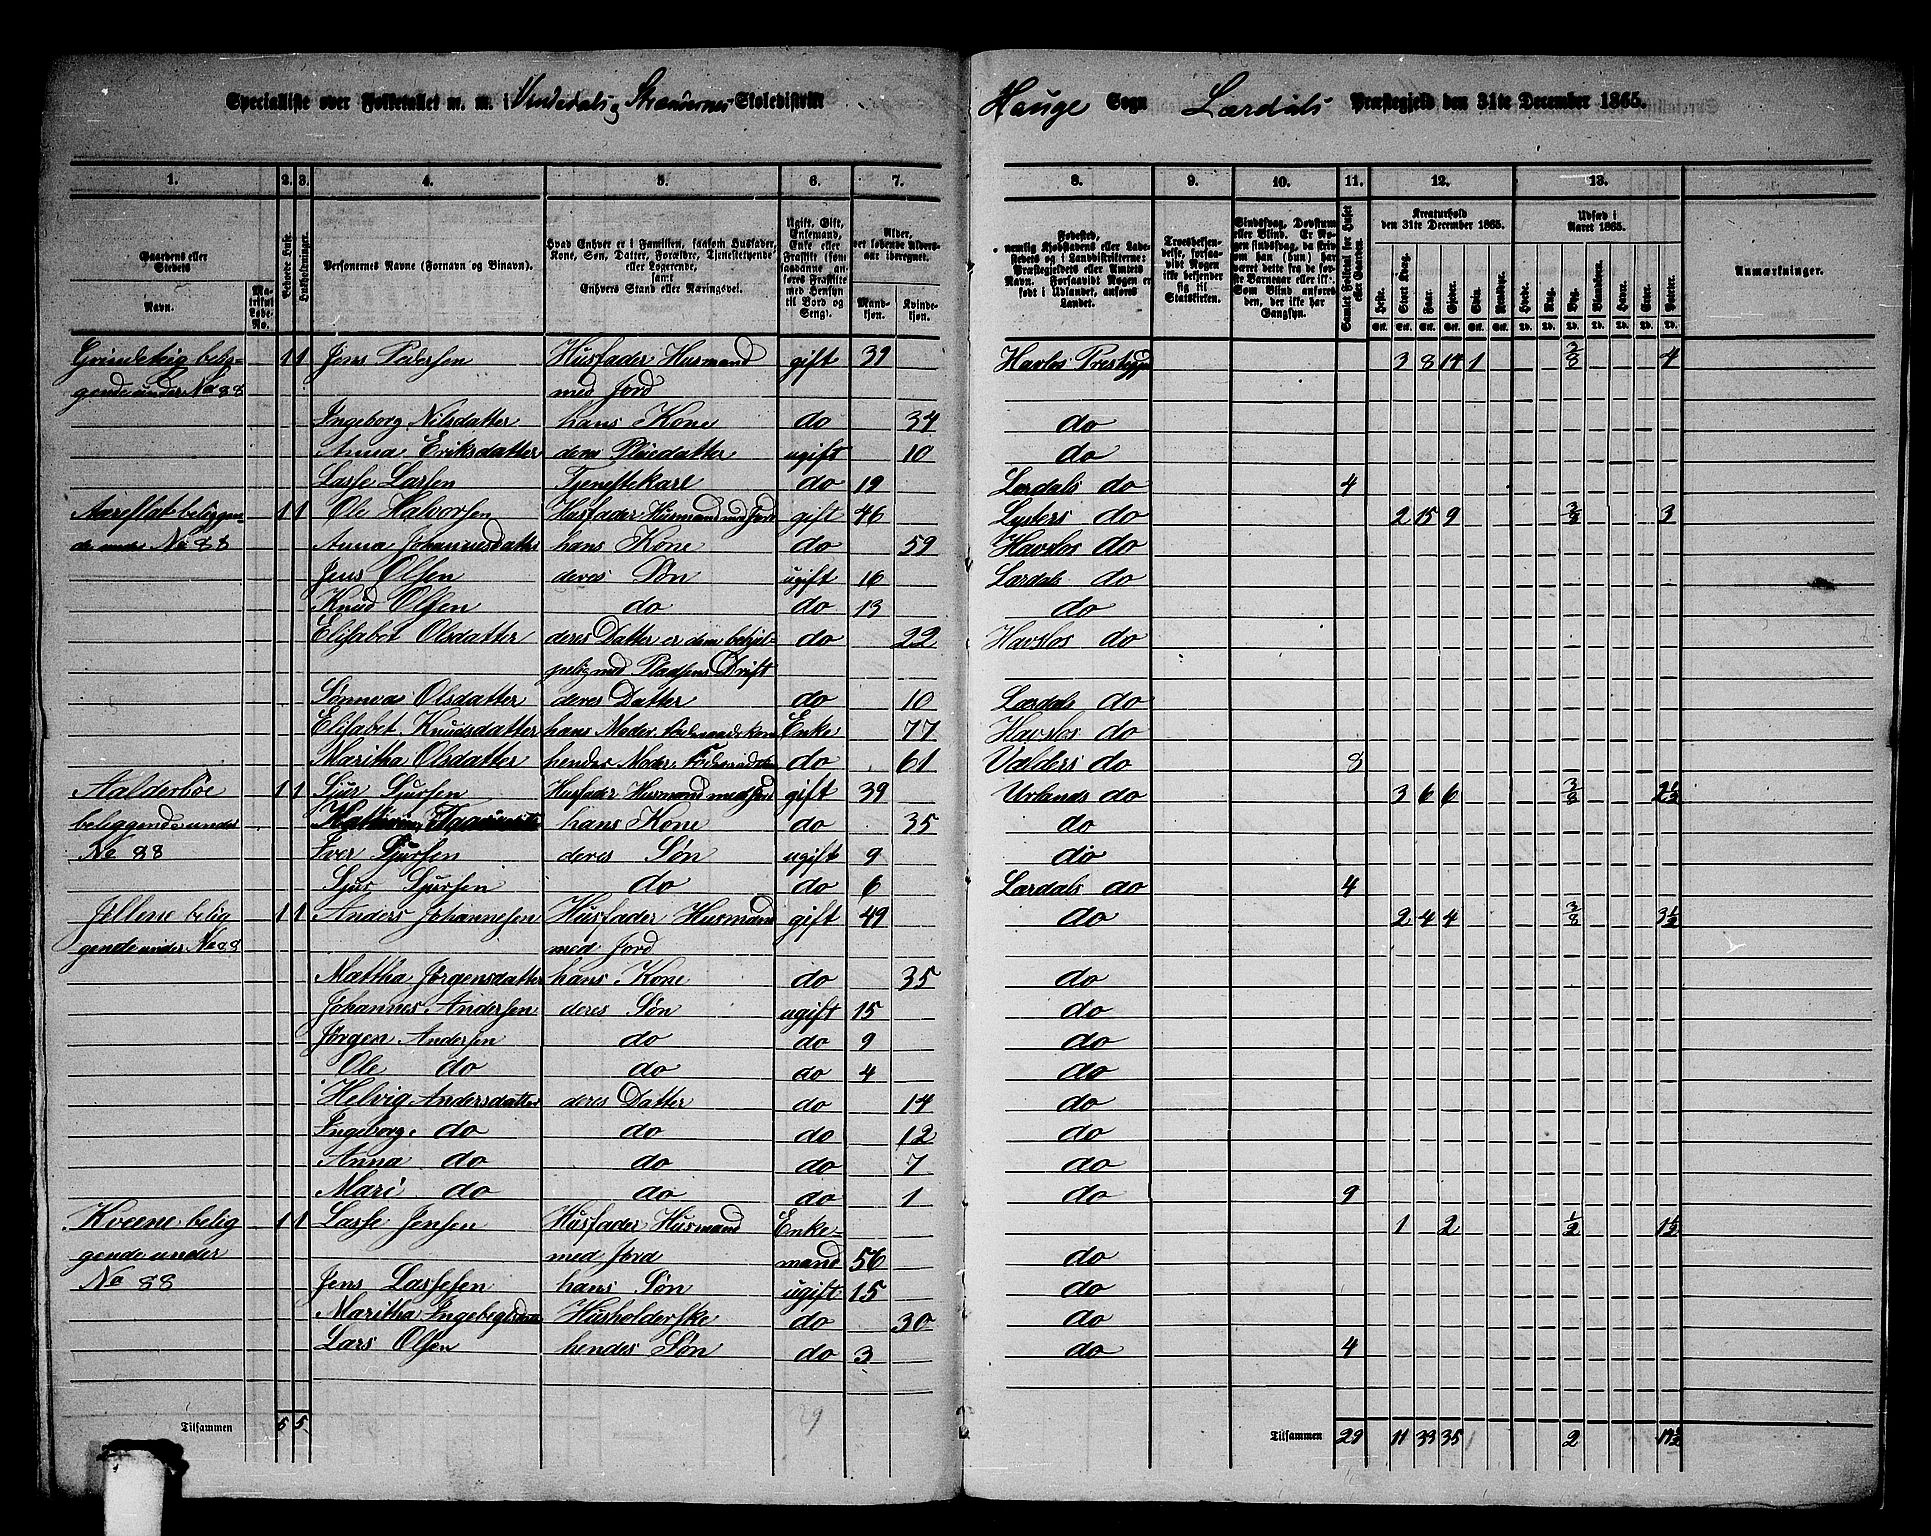 Specialliste over Folketallet m. m. i Vindedals og Strændernes Skoledistrikt Hauge Sogn Lærdals Præstegjeld den 31te December 1865.
1. 2. 3. 4. 5. 6. 7. 8. 9. 10. 11. 12. 13.
Gaardens eller Stedets Navn. Matrikul Løbe-No. Beboede Huse. Husholdninger. Personernes Navne (Fornavn og Binavn). Hvad Enhver er i Familien, saasom Husfader, Kone, Søn, Datter, Forældre, Tjenestetyende eller Logerende, samt Enhvers Stand eller Næringsvei. Ugift, Gift, Enkemand, Enke eller Fraskilt (saadanne anføres Fraskilte med Hensyn til Bord og Seng). Alder, det løbende Alders-aar iberegnet. Mandkjøn. Kvindekjøn. Fødested, nemlig Kjøbstadens eller Ladestedets og i Landdistrikterne: Præstegjeldets eller Amtets Navn. Forsaavidt Nogen er født i Udlandet, anføres Landet. Troesbekjendelse, forsaavidt Nogen ikke bekjender sig til Statskirken. Sindssvag, Døvstum eller Blind. Samlet Folketal for Huset eller Gaarden. Kreaturhold den 31te December 1865. Heste. Stort Kvæg. Faar. Gjeder. Svin. Rensdyr. Udsæd i Aaret 1865. Hvede. Rug. Byg. Blandkorn. Havre. Erter. Poteter. Anmærkninger.
Grindekig belig- 1 1 Jens Pedersen Husfader Husmand gift 39 Havslos Prestegjd 3 8 14 1 3/8 4
gende under No 88 med Jord
Ingeborg Nilsdatter hans Kone do 34 do
Anna Eriksdatter deres Pleiedatter ugift 10 do
Lasse Larsen Tjenestekarl do 19 Lærdals do 4
Aareflat beliggen- 1 1 Ole Halvorsen Husfader Husmand med Jord gift 46 Lysters do 2 15 9 3/8 3
de under No 88 Anna Johannesdatter hans Kone do 59 Havslos do
Jens Olsen deres Søn ugift 16 Lærdals do
Knud Olsen do do 13 do
Elisabet Olsdatter deres Datter er dem behjel- do 22 Havslos do
pelig med Pladsens Drift
Sønneva Olsdatter deres Datter do 10 Lærdals do
Elisabet Knudsdatter hans Moder Enke 77 Havslos do
Maritha Olsdatter hendes Moder do 61 Valders do 8
Aalderbøe 1 1 Sjur Sjursen Husfader Husmand med Jord gift 39 Urlands do 3 6 6 3/8 2 1/2
beliggende under hans Kone do 35 do
No 88 Iver Sjursen deres Søn ugift 9 do
Sjur Sjursen do do 6 Lærdals do 4
Jellene belig 1 1 Anders Johannesen Husfader Husmand gift 49 do 2 4 4 3/8 3 1/2
gende under No 88 med Jord
Mattha Jørgensdatter hans Kone do 35 do
Johannes Andersen deres Søn ugift 15 do
Jørgen Andersen do do 9 do
Ole do do do 4 do
Helvig Andersdatter deres Datter do 14 do
Ingeborg do do do 12 do
Anna do do do 7 do
Mari do do do 1 do 9
Kveene belig 1 1 Lasse Jensen Husfader Husmand Enke- 1 2 1/2 1 1/2
gende under med Jord mand 56 do
No 88 Jens Lassesen hans Søn ugift 15 do
Maritha Husholderske do 30 do
Lars Olsen hendes Søn do 3 do 4
Tilsammen 5 5 29 Tilsammen 29 11 33 35 1 2